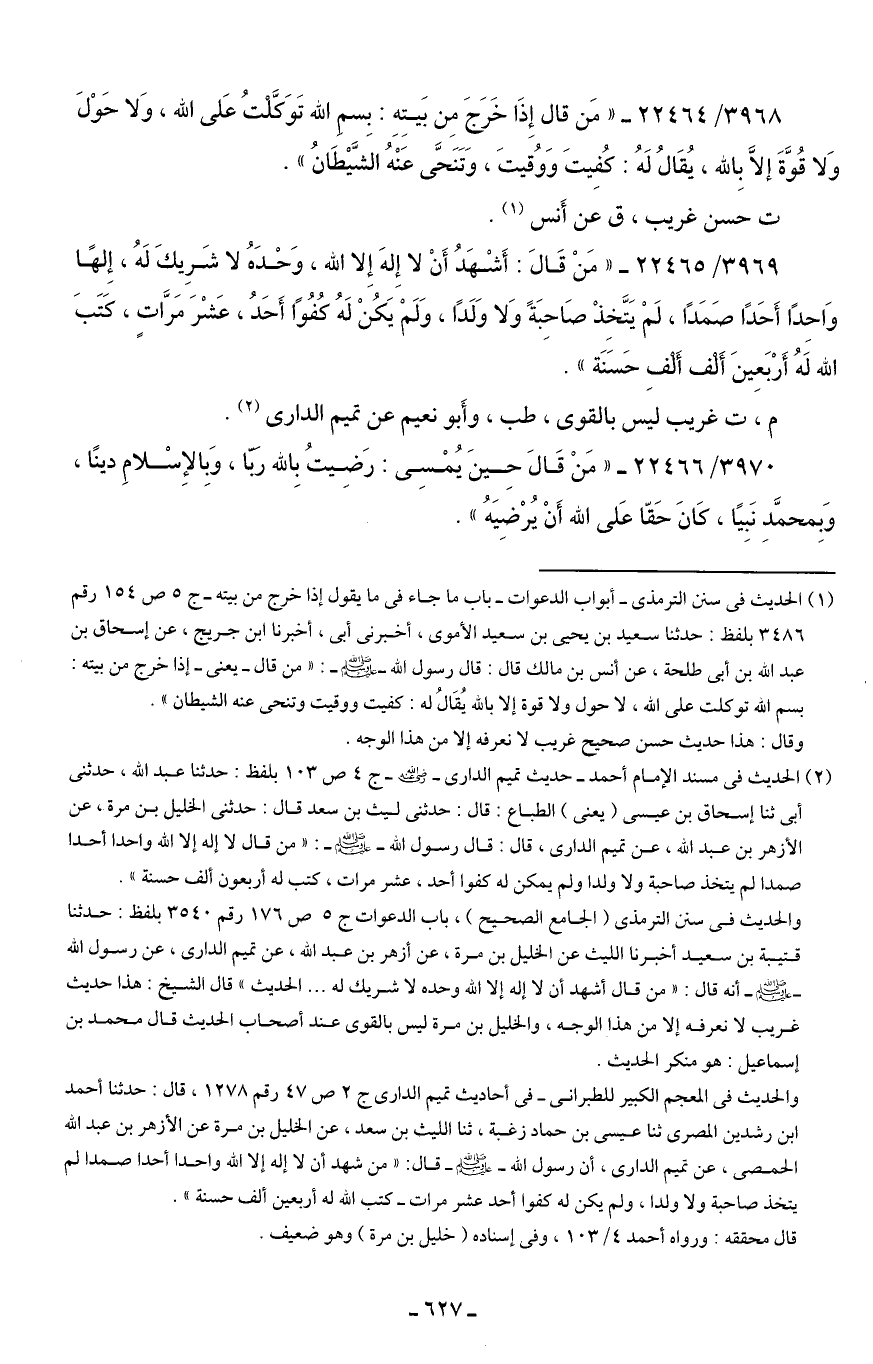 ٣٩٦٨/ ٢٢٤٦٤ ـ « مَن قال إذَا خَرَجَ مِن بَيـتِه : بِسمِ الله تَوَكَّلْتُ عَلَى الله ، وَلا حَوْلَ
وَلا قُوَّةَ إلاَّ بِالله ، يُقَالُ لَهُ : كُفِيتَ وَوُقِيتَ ، وَتَنَحَّى عَنْهُ الشَّيْطَانُ » .
ت حسن غريب ، ق عن أَنس (١) .
٣٩٦٩/ ٢٢٤٦٥ ـ « مَنْ قَـالَ : أَشْـهَدُ أَنْ لا إلهَ إلا الله ، وَحْـدَهُ لا شَـرِيكَ لَهُ ، إلهًـا
وَاحِداً أَحَدًا صَمَدًا ، لَمْ يَتَّخِذْ صَاحِبَةً وَلا ولَدًا ، ولَمْ يَكُنْ لَهُ كُفُوًا أَحَدُ ، عَشْرَ مَرَّاتٍ ، كَتَبَ
الله لَهُ أَرْبَعِينَ أَلْف أَلْفِ حَسَنَة » .
م ، ت غريب ليس بالقوى ، طب ، وأَبو نعيم عن تميم الدارى (٢) .
٣٩٧٠/ ٢٢٤٦٦ ـ « مَنْ قَـالَ حِـينَ يُمْـسِـى : رَضِـيتُ بِالله رَبّا ، وَبِالإسْـلامِ دينًا ،
وَبِمحمَّدٍ نَبِيًا ، كَانَ حَقّا عَلَى الله أَنْ يُرْضِيَهُ » .
(١) الحديث فى سنن الترمذى ـ أبواب الدعوات ـ باب ما جاء فى ما يقول إذا خرج من بيته ـ ج ٥ ص ١٥٤ رقم
٣٤٨٦ بلفظ : حدثنا سعيد بن يحيى بن سعيد الأموى ، أخبرنى أبى ، أخبرنا ابن جريج ، عن إسحاق بن
عبد الله بن أبى طلحة ، عن أنس بن مالك قال : قال رسول الله ـ ﷺ ـ : « من قال ـ يعنى ـ إذا خرج من بيته :
بسم الله توكلت على الله ، لا حول ولا قوة إلا بالله يُقَالُ له : كفيت ووقيت وتنحى عنه الشيطان » .
وقال : هذا حديث حسن صحيح غريب لا نعرفه إلا من هذا الوجه .
(٢) الحديث فى مسند الإمام أحمد ـ حديث تميم الدارى ـ رضي الله عنه ـ ج ٤ ص ١٠٣ بلفظ : حدثنا عبد الله ، حدثنى
أبى ثنا إسحاق بن عيسى ( يعنى ) الطباع : قال : حدثنى ليث بن سعد قال : حدثنى الخليل بن مرة ، عن
الأزهر بن عبد الله ، عن تميم الدارى ، قال : قال رسول الله ـ ﷺ ـ : « من قال لا إله إلا الله واحدا أحدا
صمدا لم يتخذ صاحبة ولا ولدا ولم يمكن له كفوا أحد ، عشر مرات ، كتب له أربعون ألف حسنة » .
والحديث فى سنن الترمذى ( الجامع الصحيح ) ، باب الدعوات ج ٥ ص ١٧٦ رقم ٣٥٤٠ بلفظ : حدثنا
قتيبة بن سعيد أخبرنا الليث عن الخليل بن مرة ، عن أزهر بن عبد الله ، عن تميم الدارى ، عن رسول الله
ـ ﷺ ـ أنه قال : « من قال أشهد أن لا إله إلا الله وحده لا شريك له ... الحديث » قال الشيخ : هذا حديث
غريب لا نعرفه إلا من هذا الوجه ، والخليل بن مرة ليس بالقوى عند أصحاب الحديث قال محمد بن
إسماعيل : هو منكر الحديث .
والحديث فى المعجم الكبير للطبرانى ـ فى أحاديث تميم الدارى ج ٢ ص ٤٧ رقم ١٢٧٨ ، قال : حدثنا أحمد
ابن رشدين المصرى ثنا عيسى بن حماد زغبة ، ثنا الليث بن سعد ، عن الخليل بن مرة عن الأزهر بن عبد الله
الحمصى ، عن تميم الدارى ، أن رسول الله ـ ﷺ ـ قال: « من شهد أن لا إله إلا الله واحدا أحدا صمدا لم
يتخذ صاحبة ولا ولدا ، ولم يكن له كفوا أحد عشر مرات ـ كتب الله له أربعين ألف حسنة » .
قال محققه : ورواه أحمد ٤/ ١٠٣ ، وفى إسناده ( خليل بن مرة ) وهو ضعيف .
ـ ٦٢٧ ـ